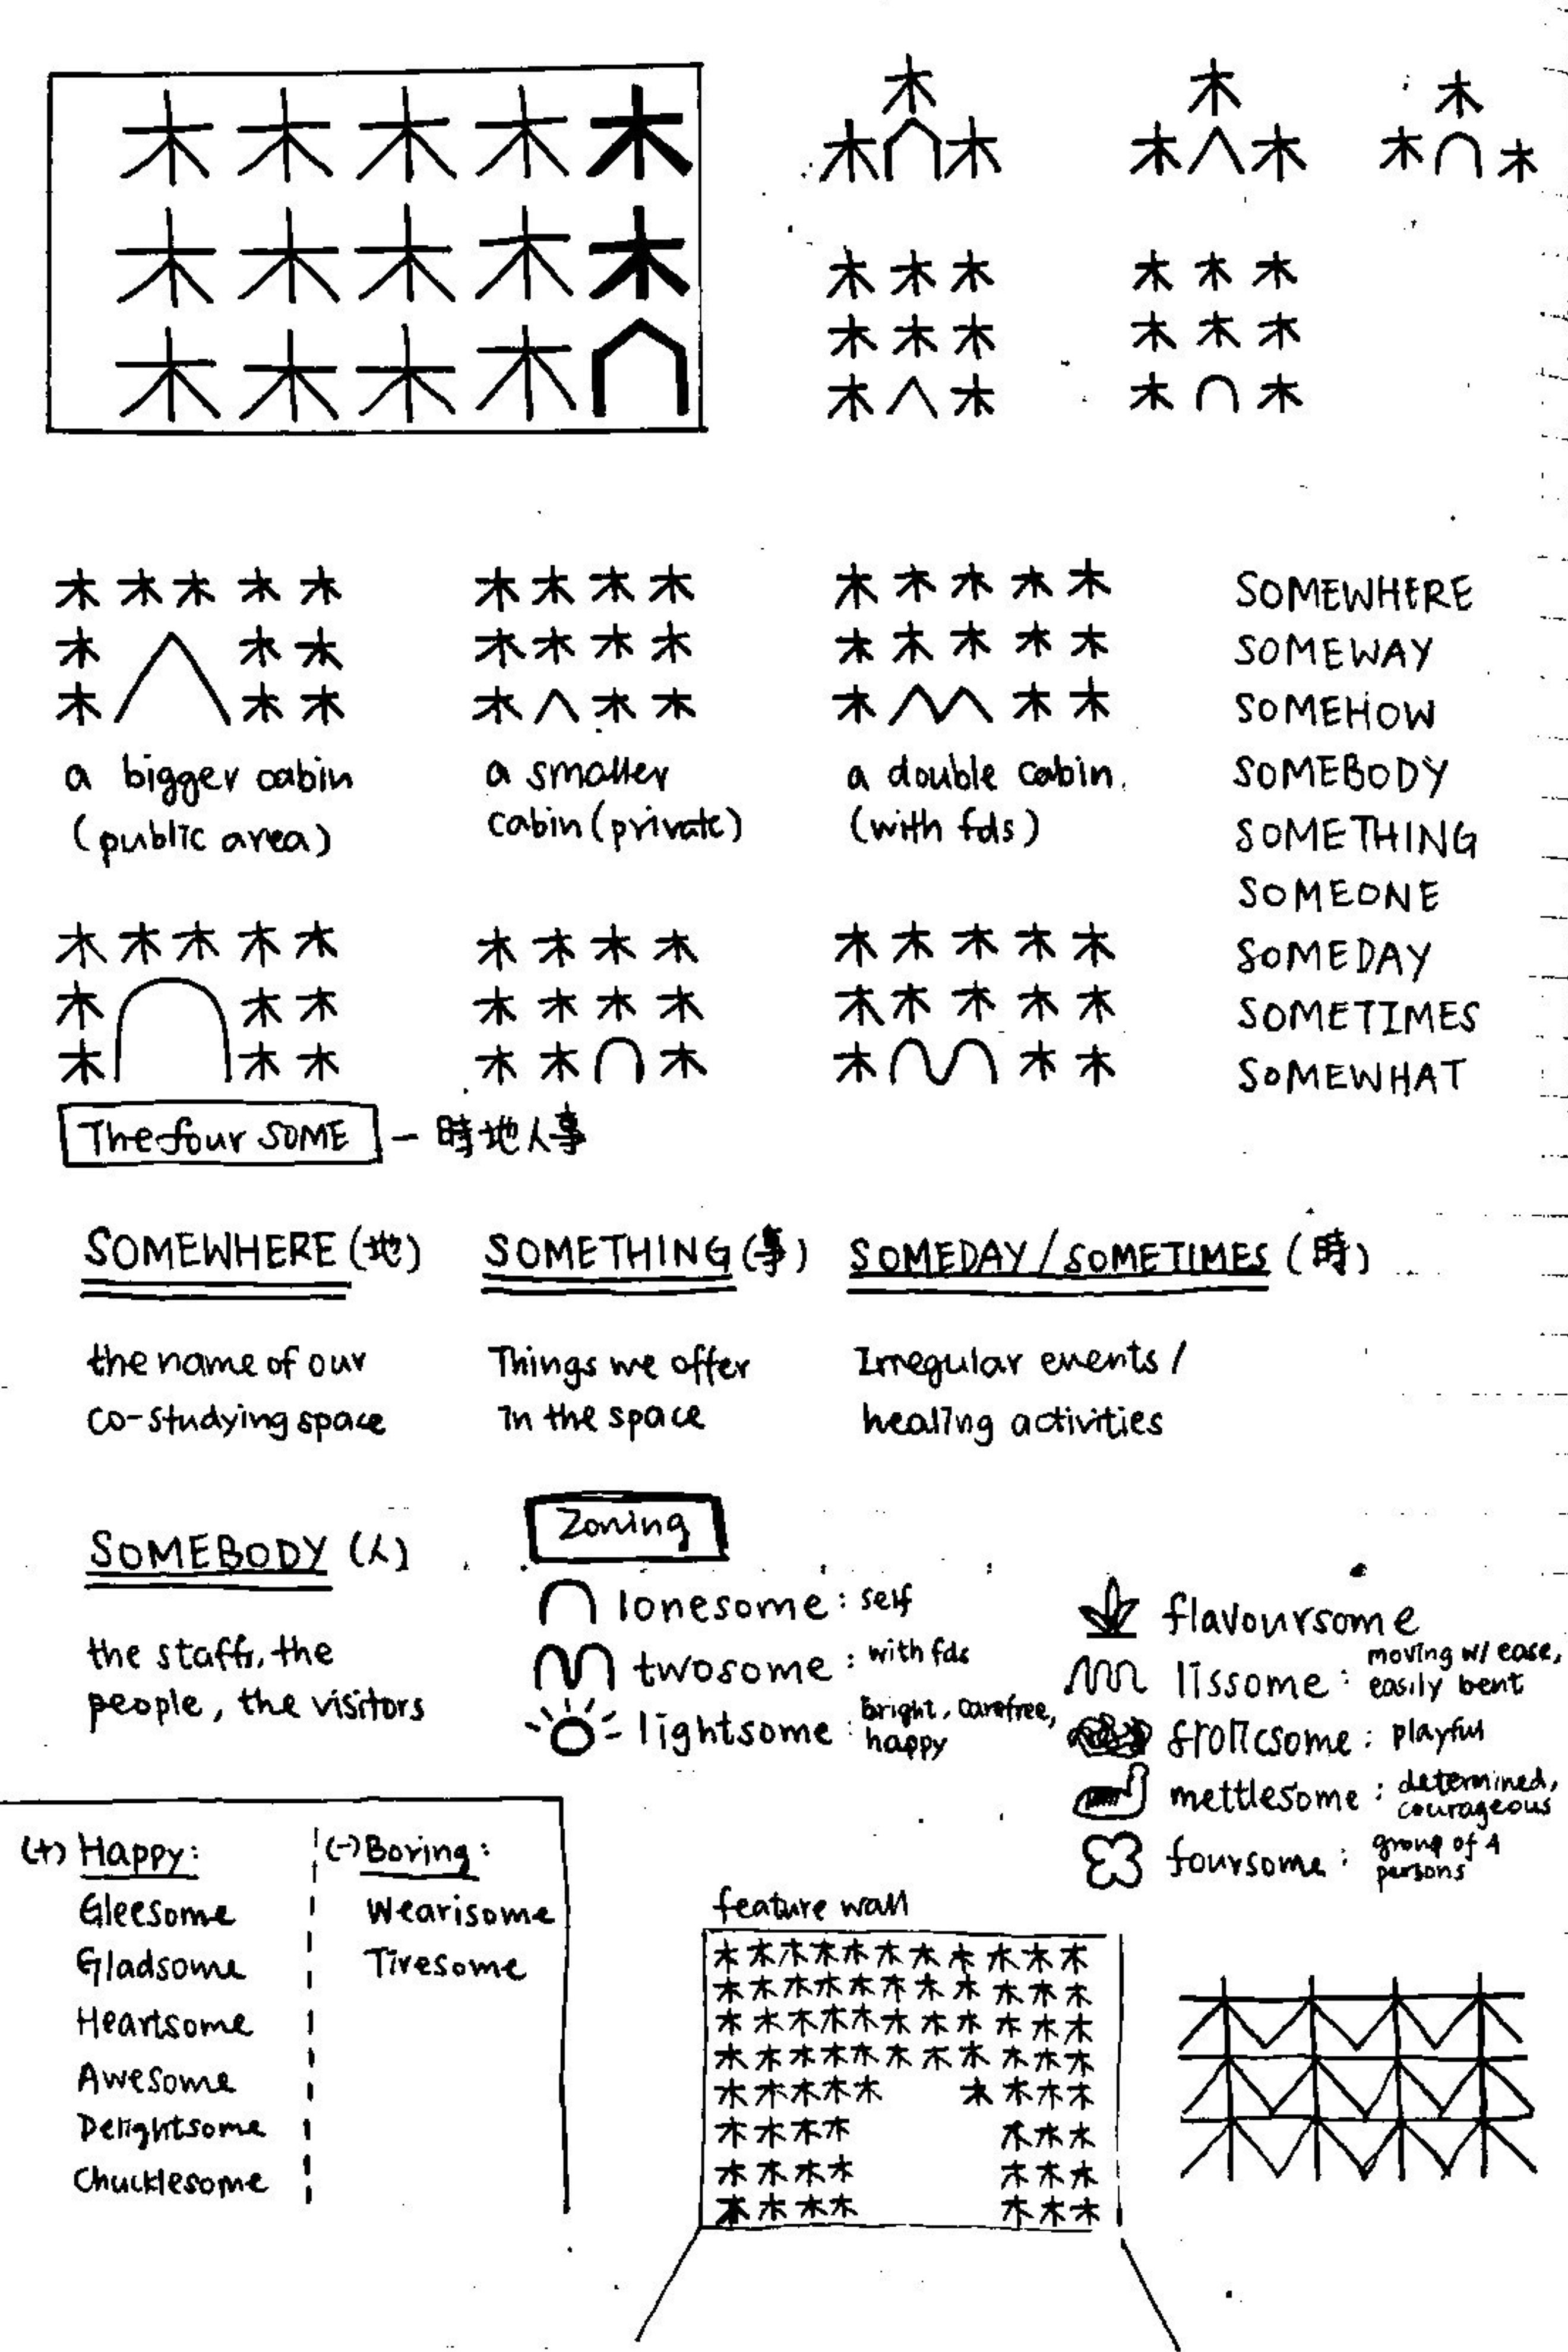 木 木 木 木 木
木 木 木 木 木
木 木 木 木
木
木 木
木
木 木
木
木 木
木 木 木
木 木 木
木 木
木 木 木
木 木 木
木 木
木 木 木 木 木
木 木 木
木 木 木
a bigger cabin
(public area)
木 木 木 木
木 木 木 木
木 木 木
a smaller
cabin (private)
木 木 木 木 木
木 木 木 木 木
木 木 木
a double cabin.
(with fds)
SOMEWHERE
SOMEWAY
SOMEHOW
SOMEBODY
SOMETHING
SOMEONE
SOMEDAY
SOMETIMES
SOMEWHAT
木 木 木 木 木
木 木 木
木 木 木
木 木 木 木
木 木 木 木
木 木 木
木 木 木 木 木
木 木 木 木 木
木 木 木
The four SOME – 時地人事
SOMEWHERE (地)
the name of our
co-studying space
SOMETHING (事)
Things we offer
in the space
SOMEDAY / SOMETIMES (時)
Irregular events /
healing activities
SOMEBODY (人)
the staffs, the
people, the visitors
Zoning
lonesome : self
twosome : with fds
lightsome : bright, carefree,
happy
flavoursome
lissome : moving w/ ease,
easily bent
frolicsome : playful
mettlesome : determined,
courageous
foursome : group of 4
persons
(+) Happy:
Gleesome
Gladsome
Heartsome
Awesome
Delightsome
Chucklesome
(-) Boring:
Wearisome
Tiresome
feature wall
木木木木木木木木木木木
木木木木木木木木木木木
木木木木木木木木木木木
木木木木木木木木木木木
木木木木木 木木木木
木木木木 木木木
木木木木 木木木
木木木木 木木木